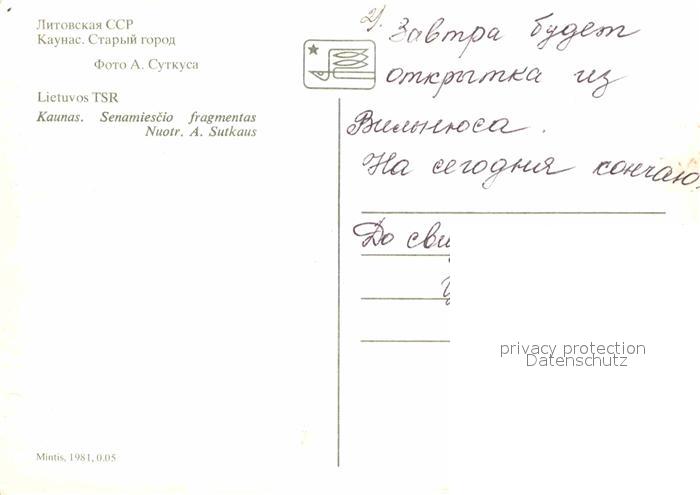 Литовская ССР
Каунас. Старый город
Фото А. Суткуса
Lietuvos TSR
Kaunas. Senamiesčio fragmentas
Nuotr. A. Sutkaus
Mintis, 1981, 0.05
2).
Завтра будет
открытка из
Вильнюса.
На сегодня кончаю.
До сви
privacy protection
Datenschutz